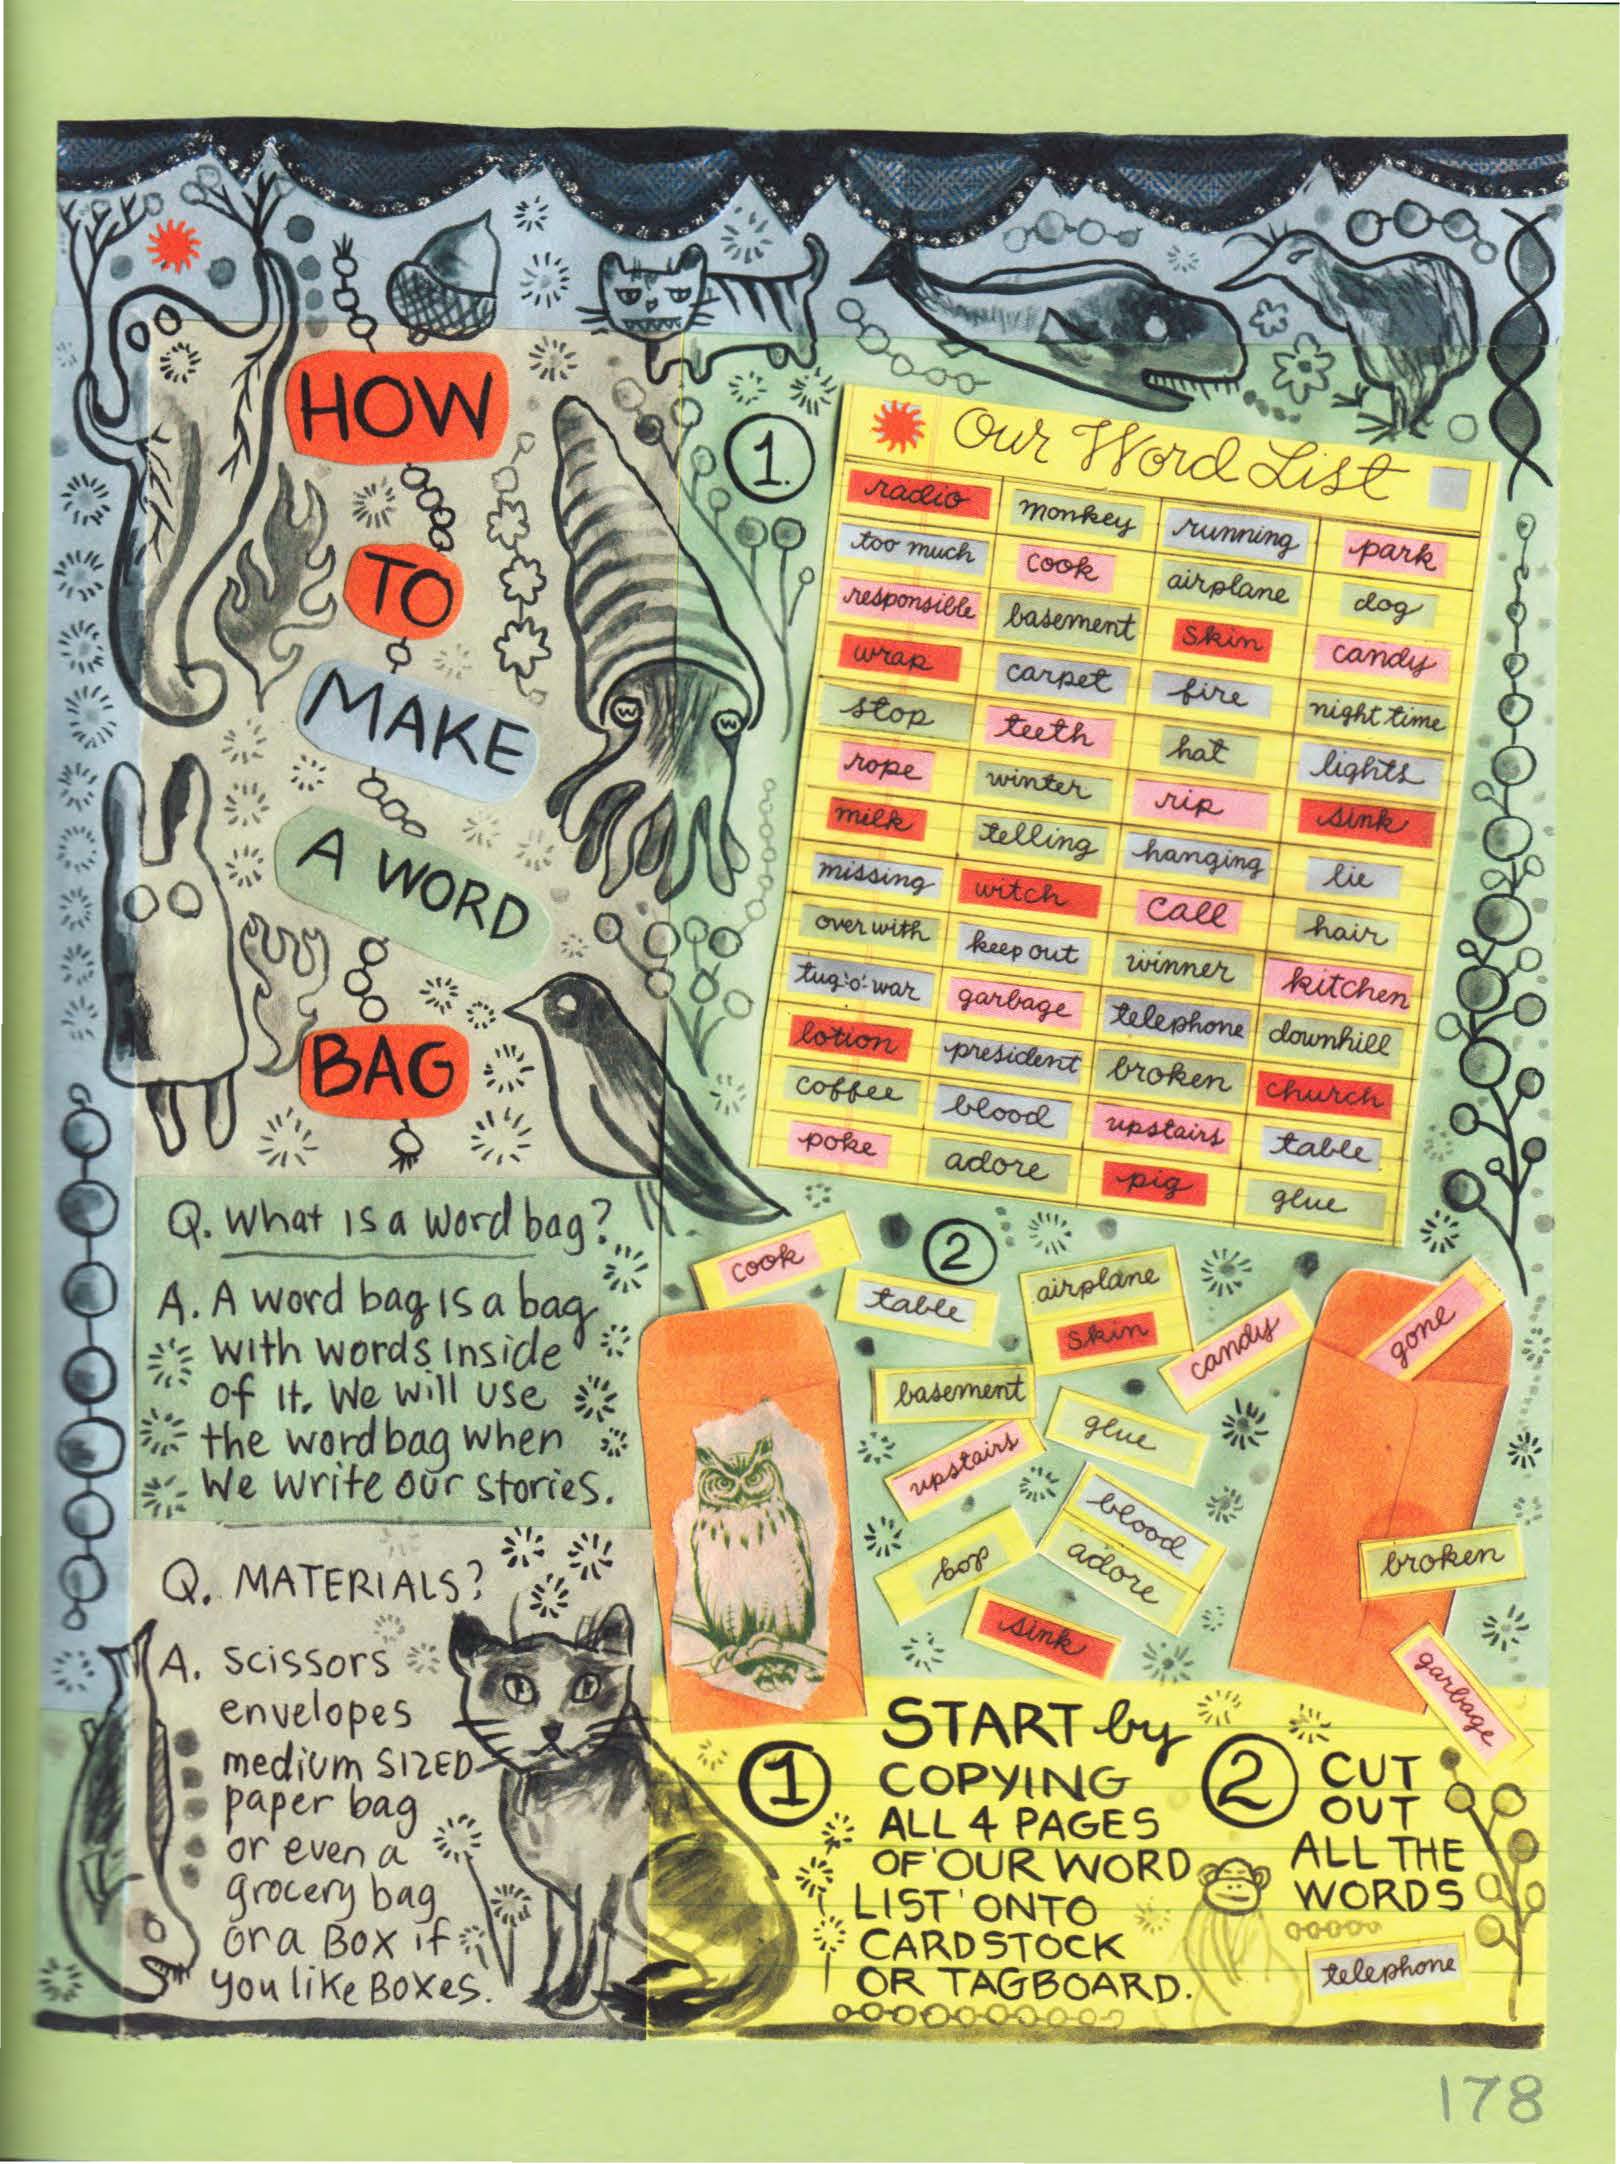 HOW
TO
MAKE
A WORD
BAG
Q. What is a word bag?
A. A word bag is a bag
with words inside
of it. We will use
the wordbag when
we write our stories.
Q. MATERIALS?
A. scissors
envelopes
medium SIZED
paper bag
or even a
grocery bag
or a BOX if
you like BOXES.
1.
Our Word List
radio monkey running park
too much cook airplane dog
responsible basement skin candy
wrap carpet fire night time
stop teeth hat lights
rope winter rip sink
milk telling hanging lie
missing witch call hair
over with keep out winner kitchen
tug'o'war garbage telephone downhill
lotion president broken church
coffee blood upstairs table
poke adore pig glue
2
cook
table
airplane
skin
candy
gone
basement
glue
upstairs
blood
adore
bop
broken
sink
garbage
1 START by
COPYING
ALL 4 PAGES
OF 'OUR WORD
LIST' ONTO
CARDSTOCK
OR TAGBOARD.
2 CUT
OUT
ALL THE
WORDS
telephone
178